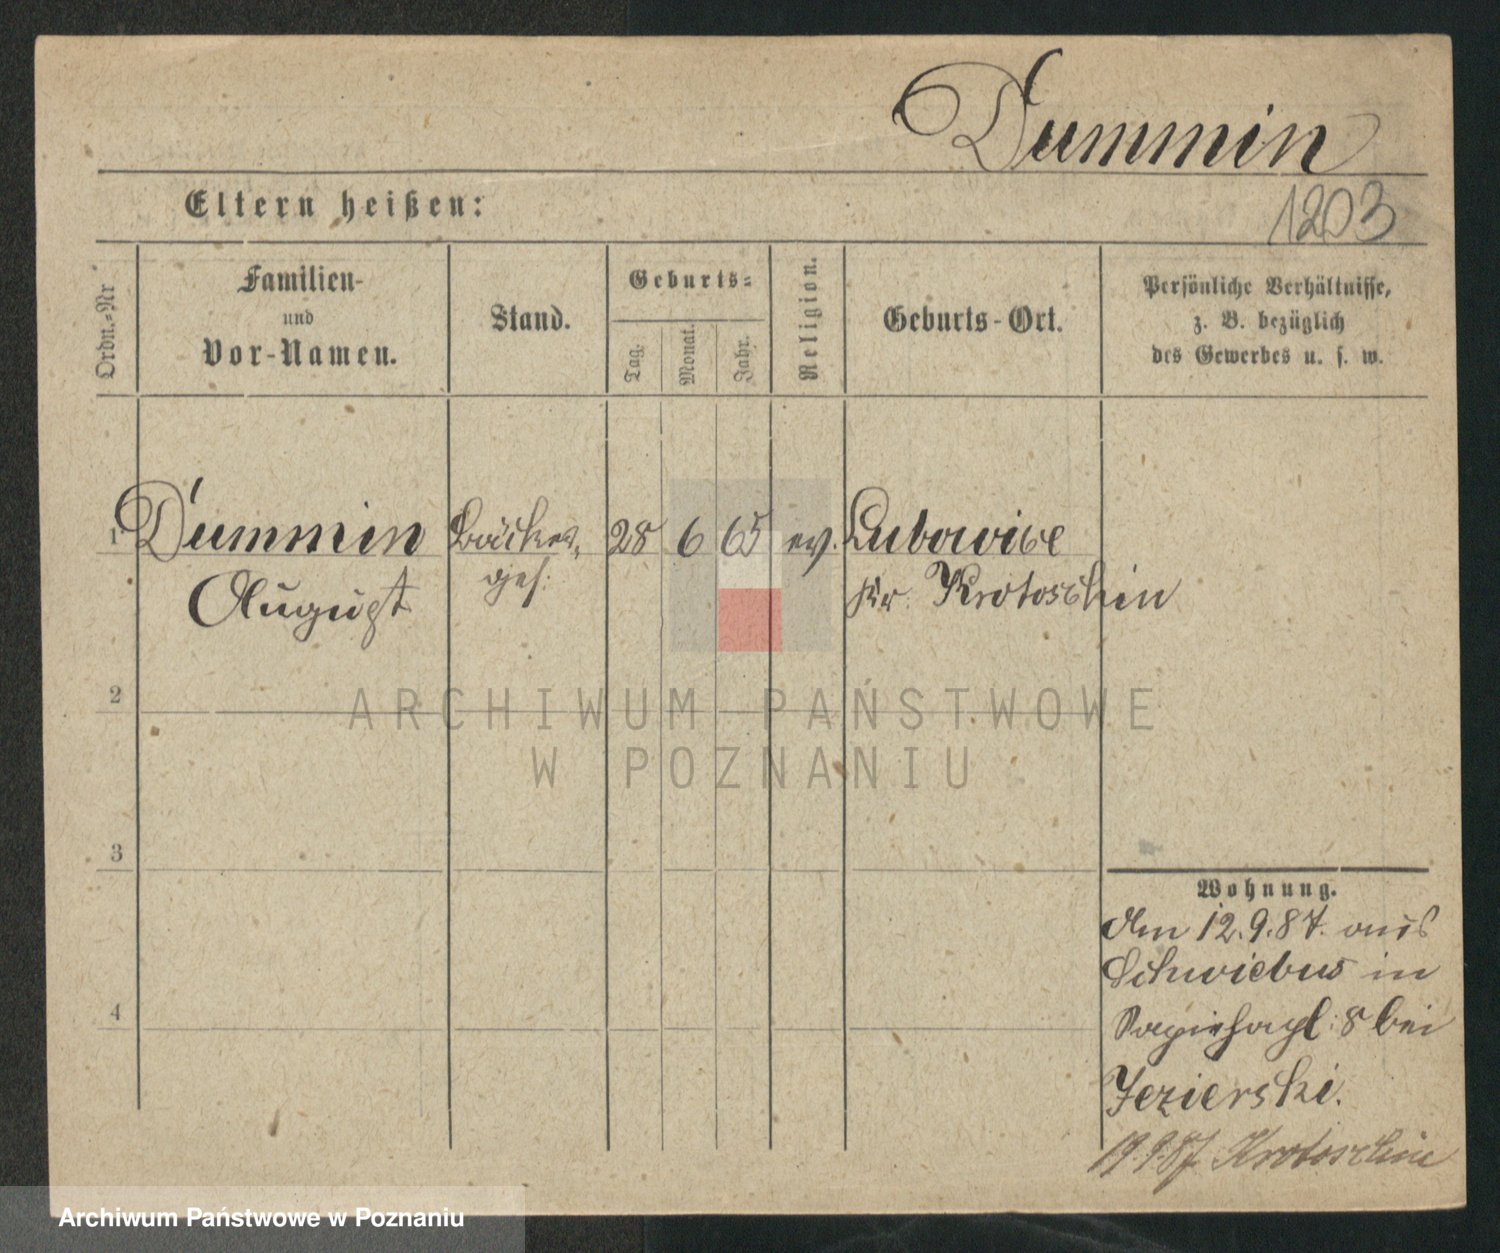 Dummin
Eltern heißen:
1203
Ordn.-Nr
Familien-
und
Vor-Namen.
Stand.
Geburts-
Tag.
Monat.
Jahr.
Religion.
Geburts-Ort.
Persönliche Verhältnisse,
z. B. bezüglich
des Gewerbes u. s. w.
1 Dummin Bäcker 28 6 65 ev. Lubowice
August ges: Kr. Krotoschin
2
ARCHIWUM PAŃSTWOWE
W POZNANIU
3
Wohnung.
Am 12.9.87. aus
Schwiebus in
8 bei
4
Jezierski.
19.9.87 Krotoschin
Archiwum Państwowe w Poznaniu